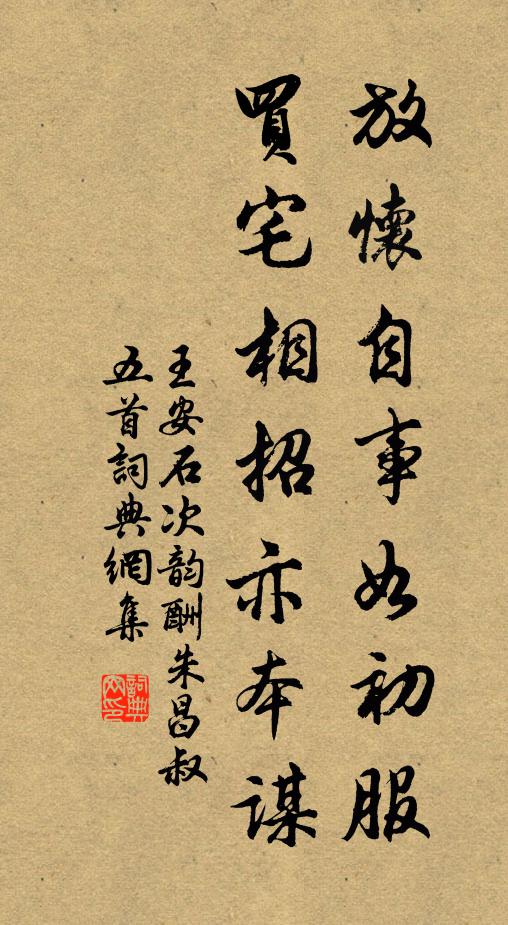 放懷自事如初服
買宅相招亦本謀
王安石次韵酬朱昌叔
五首詞典網集